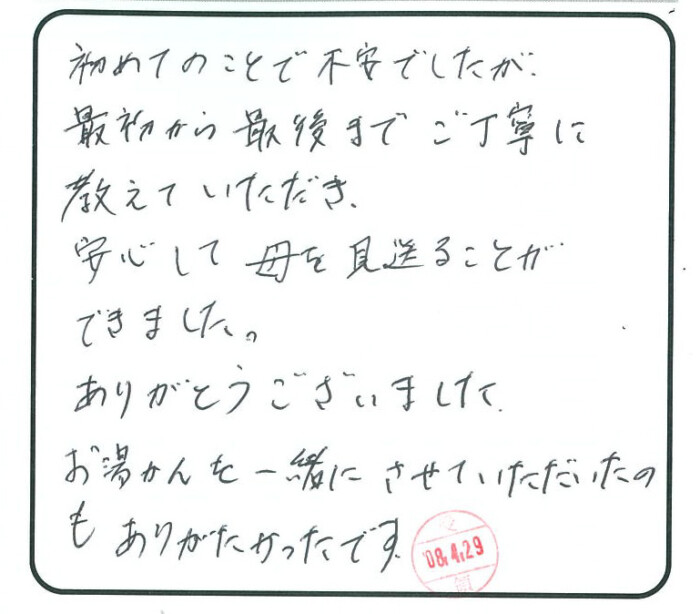 初めてのことで不安でしたが、
最初から最後までご丁寧に
教えていただき、
安心して母を見送ることが
できました。
ありがとうございました。
お湯かんを一緒にさせていただいたの
も ありがたかったです。
'08.4.29